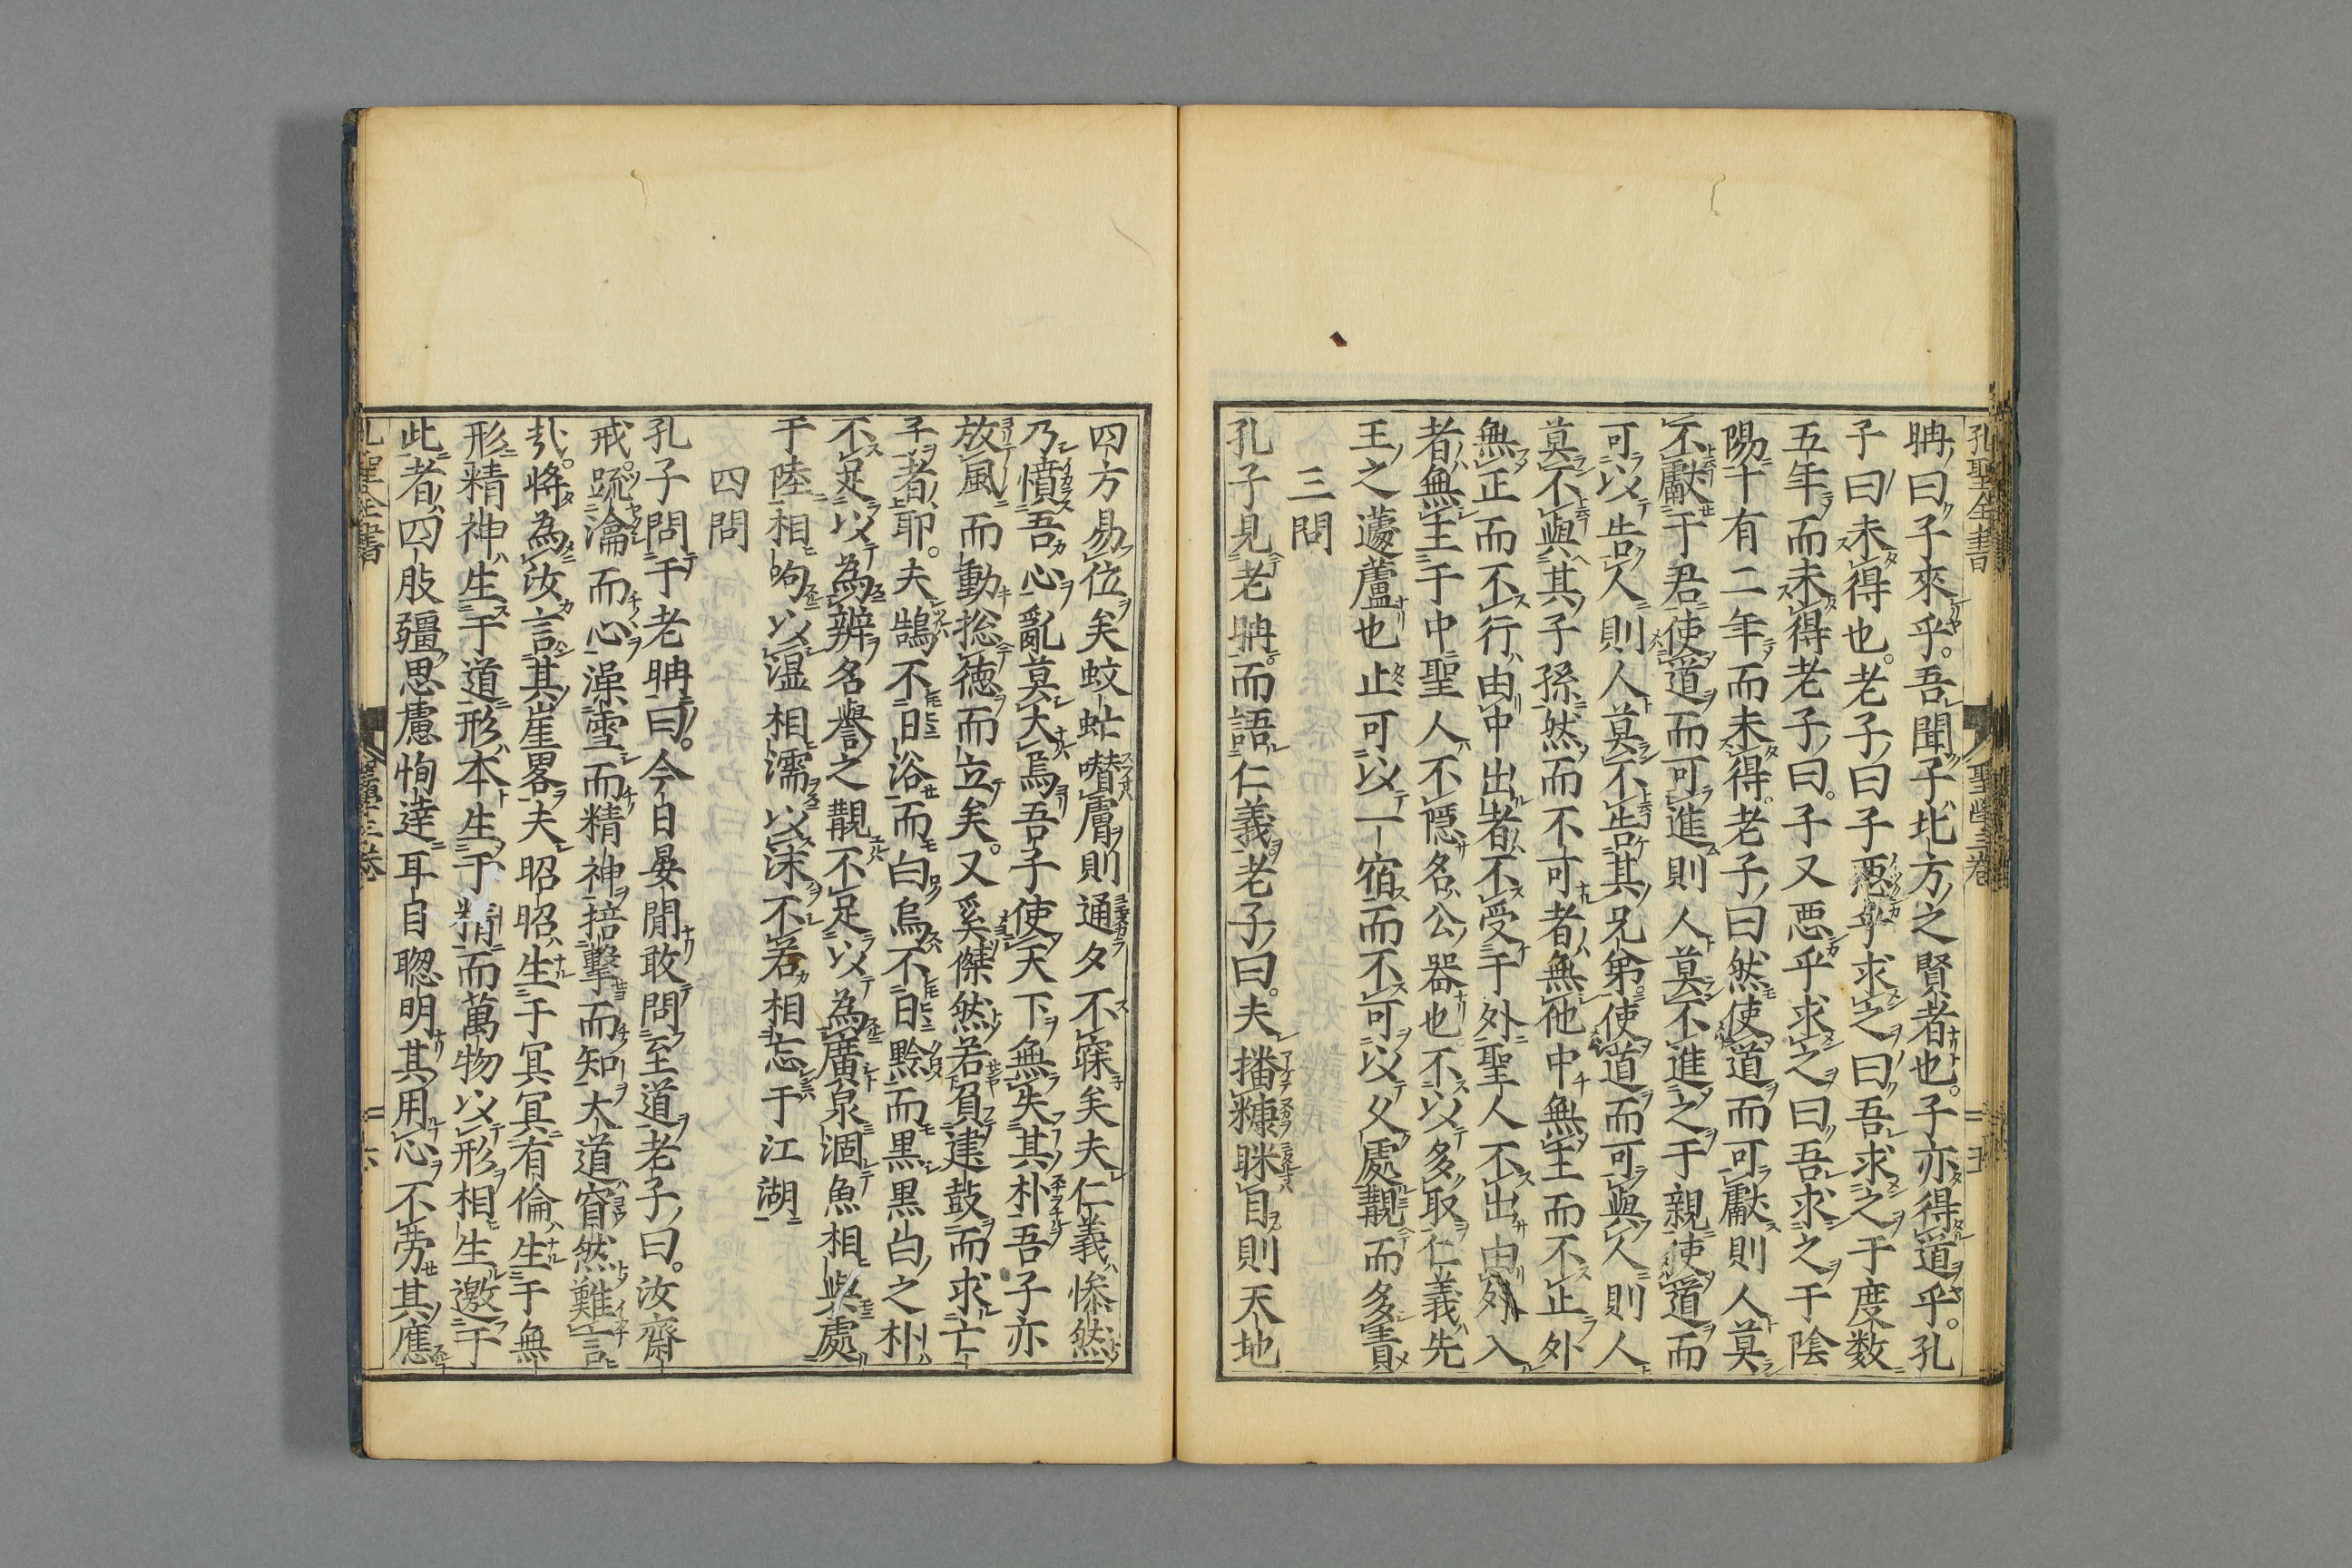 孔聖全書 聖學三卷 二 五
聃曰子來乎。吾聞子北方之賢者也。子亦得道乎。孔
子曰未得也。老子曰子惡乎求之曰吾求之于度数
五年而未得老子曰。子又惡乎求之曰吾求之于陰
陽十有二年而未得。老子曰然使道而可獻則人莫
不獻于君使道而可進則人莫不進之于親使道而
可以告人則人莫不告其兄弟。使道而可與人則人
莫不與其子孫然而不可者無他中無主而不止外
無正而不行由中出者不受于外聖人不出由外入
者無主于中聖人不隱名公器也不以多取仁義先
王之蘧蘆也止可以一宿而不可以久處覯而多責
三問
孔子見老聃。而語仁義老子曰。夫播糠眯目則天地
四方易位矣蚊虻噆膚則通夕不寐矣夫仁義惨然
乃憤吾心亂莫大焉吾子使天下無失其朴吾子亦
放風而動揔德而立矣。又奚傑然若負建鼓而求亡
子者耶。夫鵠不日浴而白烏不日黔而黒黒白之朴
不足以為辨名譽之觀不足以為廣泉涸魚相與處
于陸相呴以温相濡以沫不若相忘于江湖
四問
孔子問于老聃曰。今日晏閒敢問至道老子曰。汝齋
戒。䟽瀹而心澡雪而精神掊擊而知大道窅然難言
㢤。將為汝言其崖畧夫昭昭生于冥冥有倫生于無
形精神生于道形本生于精而萬物以形相生邀于
此者四肢彊思慮恂達耳目聰明其用心不勞其應
孔聖全書 聖學三卷 二 六